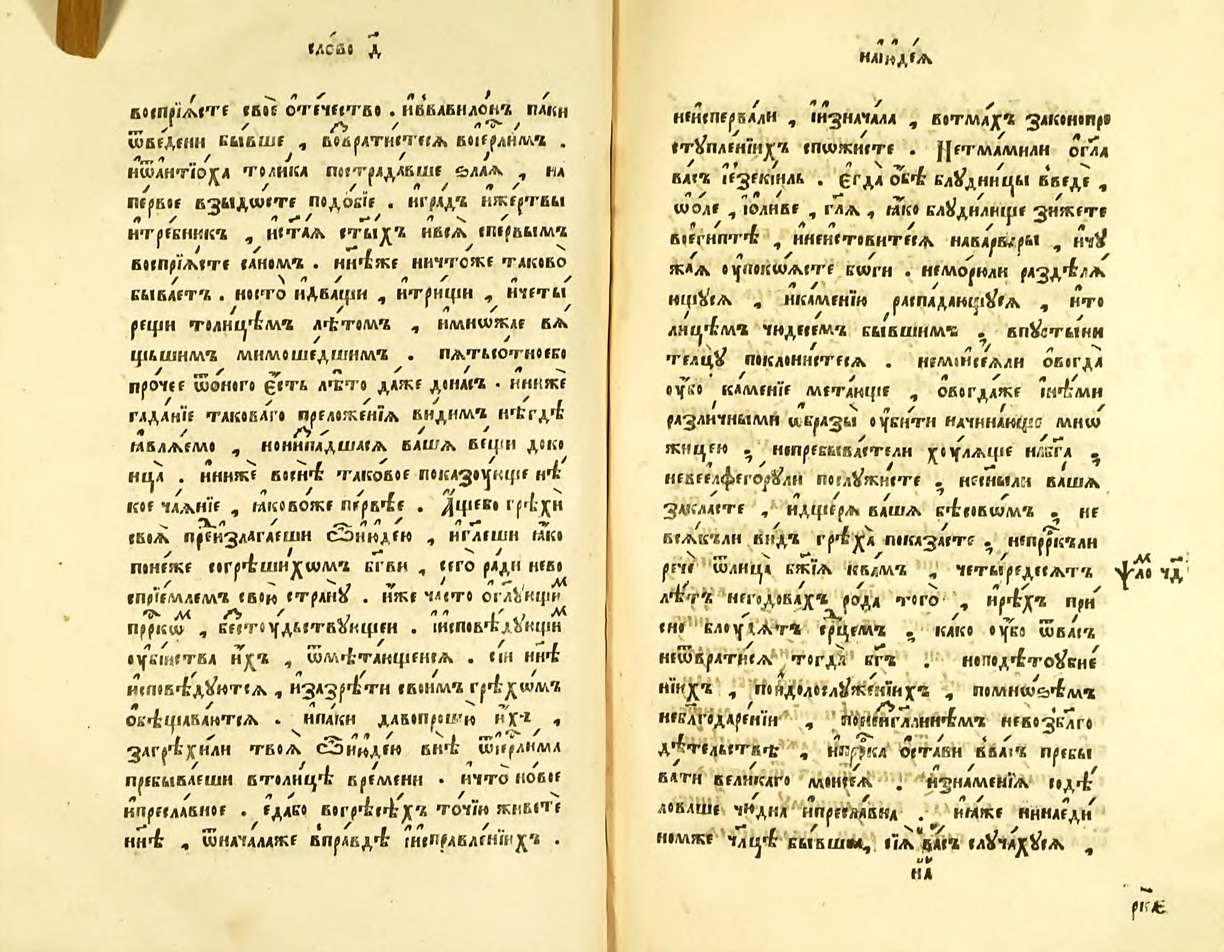 сло́во д҃
воспрїѧ́сте своѐ ѻ҆те́чество . и҆въвавило́нъ па́ки
ѿведени бы́вше , во́вратистесѧ воі҆ерⷭ҇ли́мъ .
и҆ѿа҆нтїо́ха толи́ка пострада́вше ѕла́ѧ , на
первое взыдо́сте подо́бїе . и҆гра́дъ и҆же́ртвы
и҆тре́бникъ , и҆ста҃ѧ ст҃ы́хъ и҆всѧ̀ спе́рвымъ
воспрїѧ́сте са́номъ . нн҃ѣже ничто́же таково̀
быва́етъ . носто̀ и҆два́щи , и҆три́щи , и҆четы́
рещи толи́цѣмъ лѣ́томъ , и҆мно́жае вѧ́
щьшимъ мимоше́дшимъ . пѧ́тьсо́тноебо
про́чее ѿѻ҆́ного є҆́сть лѣ́то да́же дона́съ . и҆нижѐ
гада́нїе такова́го преложе́нїѧ ви́димъ нѣ́гдѣ
ꙗ҆влѧ́емо , нои҆и҆спа́дшаѧсѧ ва́шѧ ве́щи доко
нца̀ . и҆нижѐ воснѣ̀ таково́е показоу́юще нѣ́
кое ча́ѧнїе , ꙗ҆ково́же пе́рвѣе . А҆́щебо грѣхѝ
своѧ̀ пре́дизлага́еши ѽи҆ю҆де́ю , и҆гл҃еши ꙗ҆́ко
поне́же согрѣши́хомъ бг҃ви , сего̀ ра́ди нево
спрїе́млемъ свою̀ странꙋ̀ . и҆́же ча́сто ѻ҆глꙋ́ющиⷨ
прⷪ҇ркѡⷨ , бестоудьствꙋ́ющеи . і҆исповѣ́дꙋющиⷨ
оу҆бі́йства и҆́хъ , ѿмѣта́ющеисѧ . сі́и нн҃ѣ
и҆сповѣ́дꙋютсѧ , и҆зазрѣ́ти свои́мъ грѣхо́мъ
ѻ҆бѣщава́ютсѧ . и҆па́ки давопрошю̀ и҆́хъ ,
загрѣхи́ли твоѧ̀ ѽи҆ю҆де́ю внѣ̀ ѿі҆ерⷭ҇ли́ма
пребыва́еши втоли́цѣ вре́мени . и҆что̀ но́вое
и҆пресла́вное . є҆да́бо вогрѣсѣ́хъ то́чїю живе́те
нн҃ѣ , ѿнача́лаже впра́вдѣ і҆исправле́нїихъ .
наі҆ю҆де́ѧ
неи҆спе́рвали , і҆изнача́ла , вотма́хъ законопро
стꙋпле́нїихъ спожи́сте . Не́тмамили ѻ҆гла
ва́съ і҆езекі́иль . є҆гда̀ ѻ҆́бѣ блꙋдни́цы введѐ ,
ѻ҆́ле , і҆о҆ли́ве , гл҃ѧ , ꙗ҆́ко блꙋди́лище зи́жете
воє҆ги́птѣ , и҆неи́стовитесѧ нава́рвары , и҆чꙋ
жа́ѧ оу҆поко́ѧете бо́ги . немо́рюли раздѣлѧ́
ющꙋсѧ , и҆ка́менїю распада́ющꙋсѧ , и҆то
ли́цѣмъ чюдесе́мъ бы́вшимъ ; впꙋсты́ни
телцꙋ̀ поклони́стесѧ . немоѵ҆се́ѧли ѻ҆вогда̀
оу҆́бо ка́менїе мета́юще , ѻ҆вогда́же і҆нѣ́ми
разли́чными ѡ҆́бразы оу҆би́ти начина́юще мно́
жицею ; непребыва́етели хоу́лѧще наб҃га ;
невеелфего́рꙋли послꙋжи́сте ; несы́ныли ва́шѧ
закла́сте , и҆дще́рѧ ва́шѧ бѣсово́мъ ; не
всѧ́къли ви́дъ грѣха̀ показа́сте ; непрⷪ҇ро́къли
речѐ ѿлица̀ бж҃їѧ ква́мъ , четы́редесѧтъ
лѣ́тъ негодова́хъ ро́да того̀ , и҆рѣ́хъ при́
сно блоу́дѧтъ срⷣцемъ ; ка́ко оу҆́бо ѿва́съ
неѿврати́сѧ тогда̀ бг҃ъ . нопо дѣтоубие́
нїихъ , пои҆долослꙋже́нїихъ , помно́зѣмъ
неблагодаре́нїи , понеи҆згла́ннѣмъ невозбл҃го
дѣ́тельствѣ , и҆прⷪ҇рка ѻ҆ста́ви вва́съ пребы
ва́ти вели́каго моѵ҆се́ѧ . и҆зна́менїѧ содѣ́
ловаше чю́дна и҆пресла́вна . и҆ꙗ҆́же нинаеди́
номже чл҃цѣ бы́вшаѧ, сїѧ̀ вва́съ слꙋча́хꙋсѧ ,
ѱаⷨло чд҃
на
рн҃є